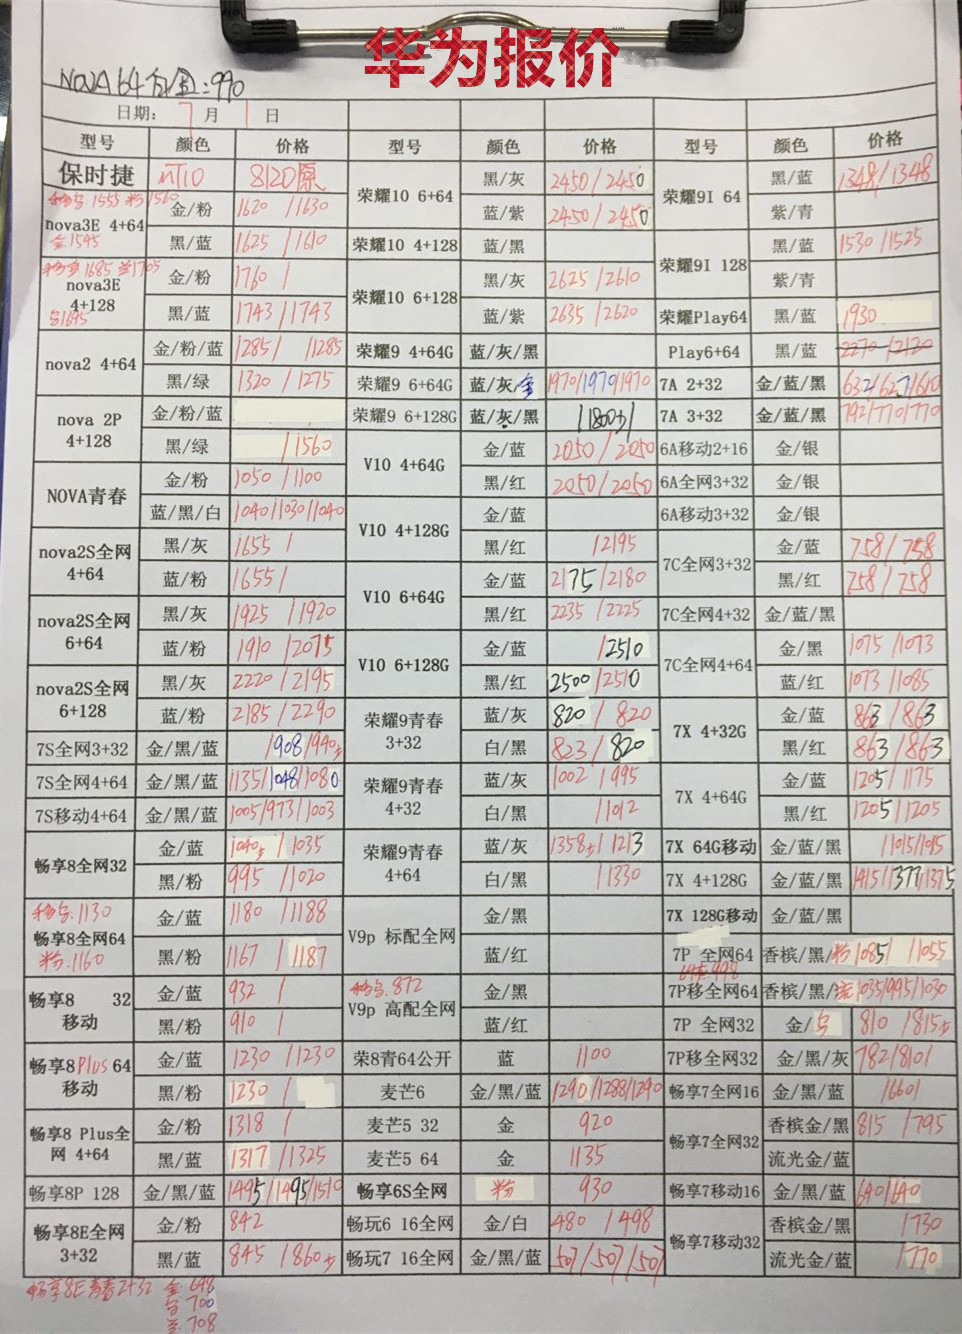 华为报价
NOVA 64 :990
日期: 7 月 1 日
型号 颜色 价格 型号 颜色 价格 型号 颜色 价格
保时捷 8120原 荣耀10 6+64 黑/灰 2450/2450 荣耀9I 64 黑/蓝 1348/1348
1555 粉1560
nova3E 4+64 金/粉 1620/1630 蓝/紫 2450/2450 紫/青
金1545
黑/蓝 1625/1610 荣耀10 4+128 蓝/黑 荣耀9I 128 黑/蓝 1530/1525
1685 1705
nova3E 4+128 金/粉 1760/ 荣耀10 6+128 黑/灰 2625/2610 紫/青
1695
黑/蓝 1743/1743 蓝/紫 2635/2620 荣耀Play64 黑/蓝 1930
nova2 4+64 金/粉/蓝 1285/ /1285 荣耀9 4+64G 蓝/灰/黑 Play6+64 黑/蓝 2270/2120
黑/绿 1320/1275 荣耀9 6+64G 蓝/灰/金 1970/1970/1970 7A 2+32 金/蓝/黑 632/627/610
nova 2P 4+128 金/粉/蓝 荣耀9 6+128G 蓝/灰/黑 7A 3+32 金/蓝/黑 792/770/770
黑/绿 /1560 V10 4+64G 金/蓝 2050/2050 6A移动2+16 金/银
NOVA青春 金/粉 1050/1100 黑/红 2050/2050 6A全网3+32 金/银
蓝/黑/白 1040/1030/1040 V10 4+128G 金/蓝 6A移动3+32 金/银
nova2S全网 4+64 黑/灰 1655/ 黑/红 /2195 7C全网3+32 金/蓝 758/758
蓝/粉 1655/ V10 6+64G 金/蓝 2175/2180 黑/红 758/758
nova2S全网 6+64 黑/灰 1925/1920 黑/红 2235/2225 7C全网4+32 金/蓝/黑
蓝/粉 1910/2075 V10 6+128G 金/蓝 /2510 7C全网4+64 金/黑 1075/1073
nova2S全网 6+128 黑/灰 2220/2195 黑/红 2500/2510 蓝/红 1073/1085
蓝/粉 2185/2290 荣耀9青春 3+32 蓝/灰 820/820 7X 4+32G 金/蓝 863/863
7S全网3+32 金/黑/蓝 /908/940 白/黑 823/820 黑/红 863/863
7S全网4+64 金/黑/蓝 1135/1048/1080 荣耀9青春 4+32 蓝/灰 1002/995 7X 4+64G 金/蓝 1205/1175
7S移动4+64 金/黑/蓝 1005/973/1003 白/黑 /1012 黑/红 1205/1205
畅享8全网32 金/蓝 1040/1035 荣耀9青春 4+64 蓝/灰 1358/1213 7X 64G移动 金/蓝/黑 /1015/1015
黑/粉 995/1020 白/黑 /1330 7X 4+128G 金/蓝/黑 1415/1377/1375
1130
畅享8全网64 金/蓝 1180/1188 V9p 标配全网 金/黑 7X 128G移动 金/蓝/黑
粉.1160
黑/粉 1167/1187 蓝/红 7P 全网64 香槟/黑/粉 1085/1055
872 998
畅享8 32 移动 金/蓝 932/ V9p 高配全网 金/黑 7P移全网64 香槟/黑/ 1035/995/1030
黑/粉 910/ 蓝/红 7P 全网32 金/ 810/815
畅享8Plus 64 移动 金/蓝 1230/1230 荣8青64公开 蓝 1100 7P移全网32 金/黑/灰 782/810/
黑/粉 1230/ 麦芒6 金/黑/蓝 1290/1288/1290 畅享7全网16 金/黑/蓝 /660/
畅享8 Plus全网 4+64 金/粉 1318/ 麦芒5 32 金 920 畅享7全网32 香槟金/黑 815/795
黑/蓝 1317/1325 麦芒5 64 金 1135 流光金/蓝
畅享8P 128 金/黑/蓝 1495/1495/1510 畅享6S全网 粉 930 畅享7移动16 金/黑/蓝 640/640
畅享8E全网 3+32 金/粉 842 畅玩6 16全网 金/白 480/498 畅享7移动32 香槟金/黑 /730
黑/蓝 845/860 畅玩7 16全网 金/黑/蓝 507/507/507 流光金/蓝 /770
畅享8E青春2+32 金 698
700
708